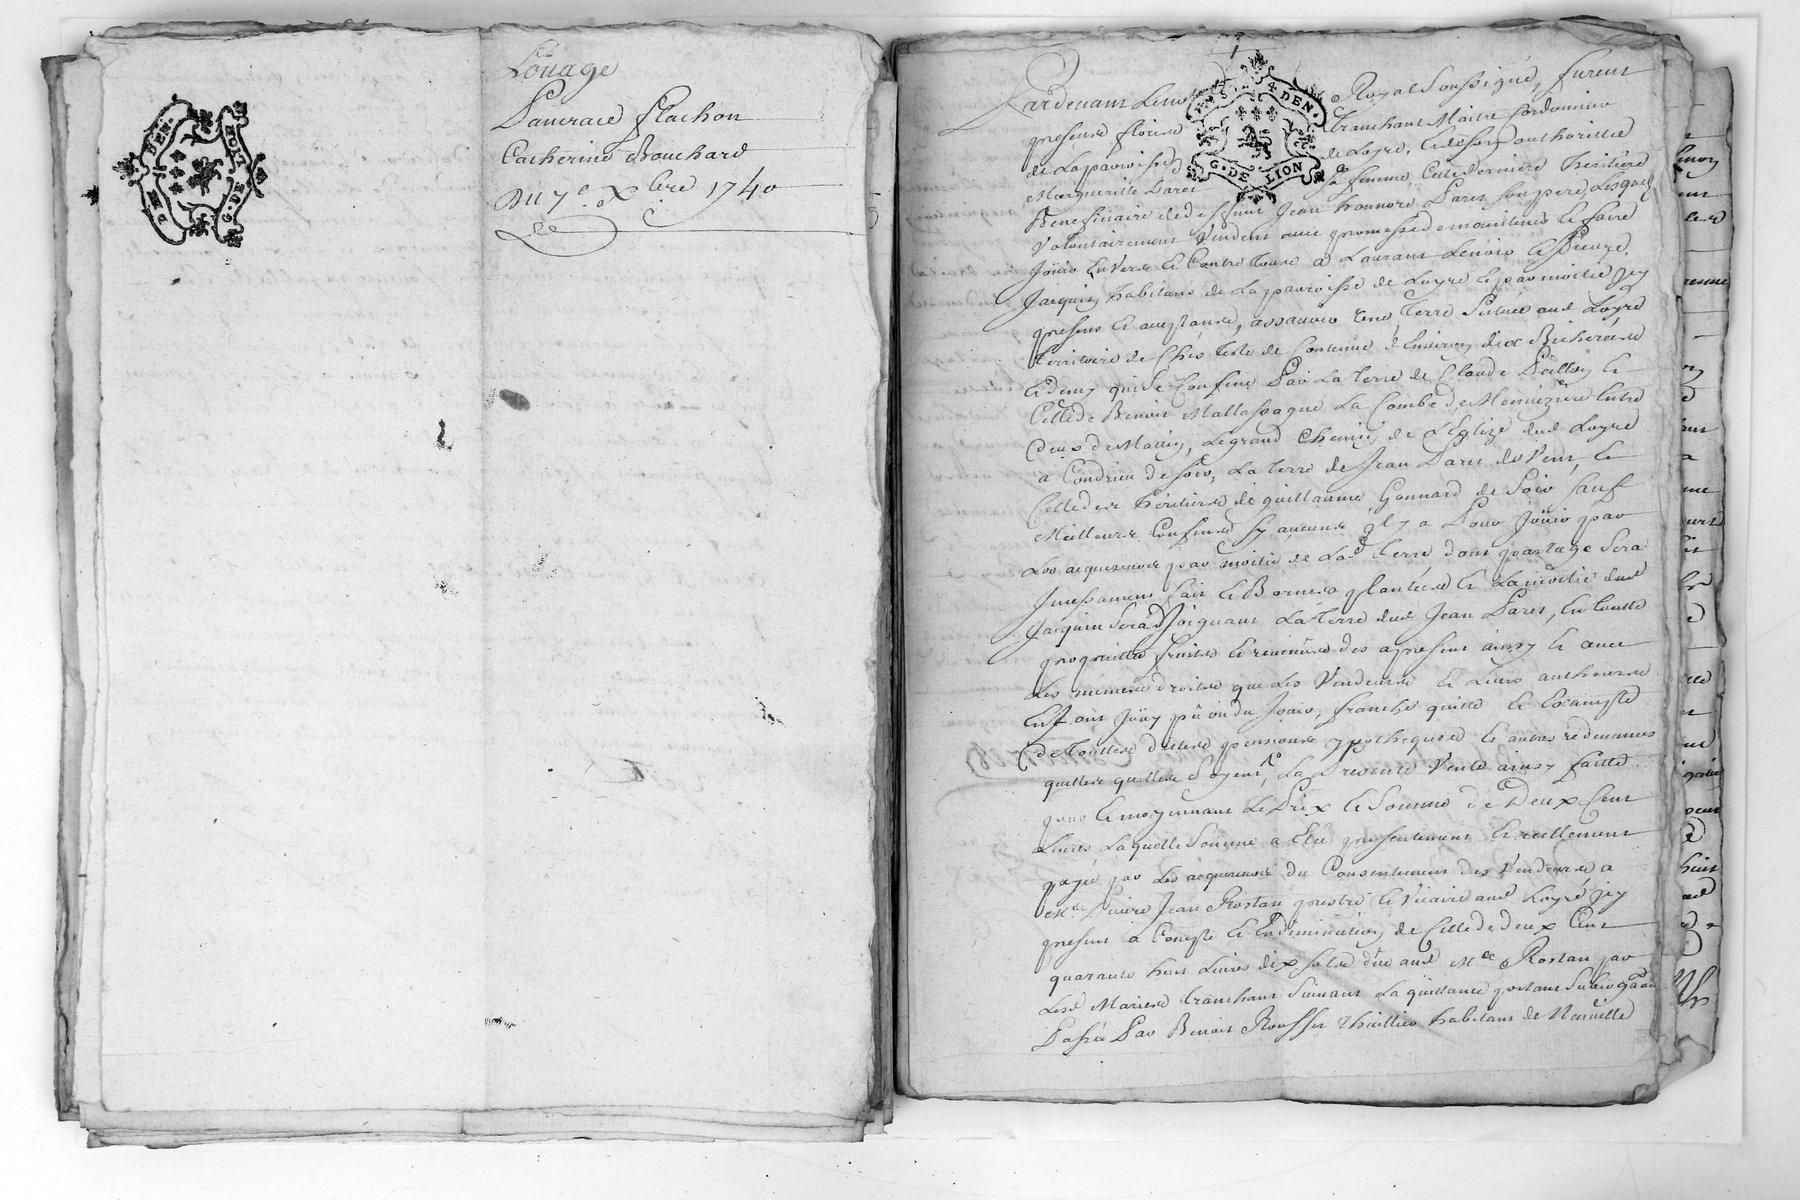 Loüage
Pancrace flachon
Catherine Bouchard
Du 7e Xbre 1740
HUIT DEN.
G. DE
Pardevant Le no Royal Soussigné, furent
4 DEN.
G. DE LION
presens Tranchant Maitre
de La parroisse de Loyre, et de son authorittée
Marguerite Paret sa femme, Cette derniere heritiere
Beneficiaire de deffunt Jean honnoré Paret son pere, Lesquels
Volontairement Vendent avec promesse de maintenir et faire
Joüir Envers et Contre tous a Laurant Lenoir et Pierre
Jacquin habitans de La parroisse de Loyre et par moitié jcy
presens et acceptants, assavoir Une Terre Scituée aud. Loyre
territoire de de Contenüe d'Environ dix Bicherées
Et demy qui se Confine Par La Terre de Claude et
Celle de Benoit Mallassagne La Combe de entre
deux de Matin, Le grand Chemin de L'Eglize dud. Loyre
a Condrieu de soir, La terre de Jean Paret de Vent, et
Celle des heritiers de guillaume Gonnard de soir sauf
Meilleurs Confins sy aucuns y a Pour Joüir par
Les acquereurs par moitié de Lad. Terre dont partage Sera
Jncessament fait et Bornes plantées et La moitié dud.
Jacquin Sera Joignant La Terre dud. Jean Paret, En toutte
proprietté fruits et revenus des apresent ainsy et avec
Les memes droits que Les Vendeurs et Leurs autheurs
En ont Joüy pû ou du Joüir, franche quitte et Exempte
de Touttes dettes pensions ypotheques et autres redevances
quelles quelles soyent, La Presente Vente ainsy faitte
pour et moyennant Le Prix et Somme de Deux Cent
Livres Laquelle Somme a Eté presentement et reellement
payée par Les acquereurs du Consentement des Vendeurs a
Mre Jean Rostan prestre et Vicaire aud. Loyre jcy
present a Compte et En diminution de Celle de deux Cent
quarante huit Livres dix sols düe aud. Mre Rostan par
Lesd. Mariés Tranchant Suivant La quittance portant
Passée Par Benoit Rousset habitant de Neuville